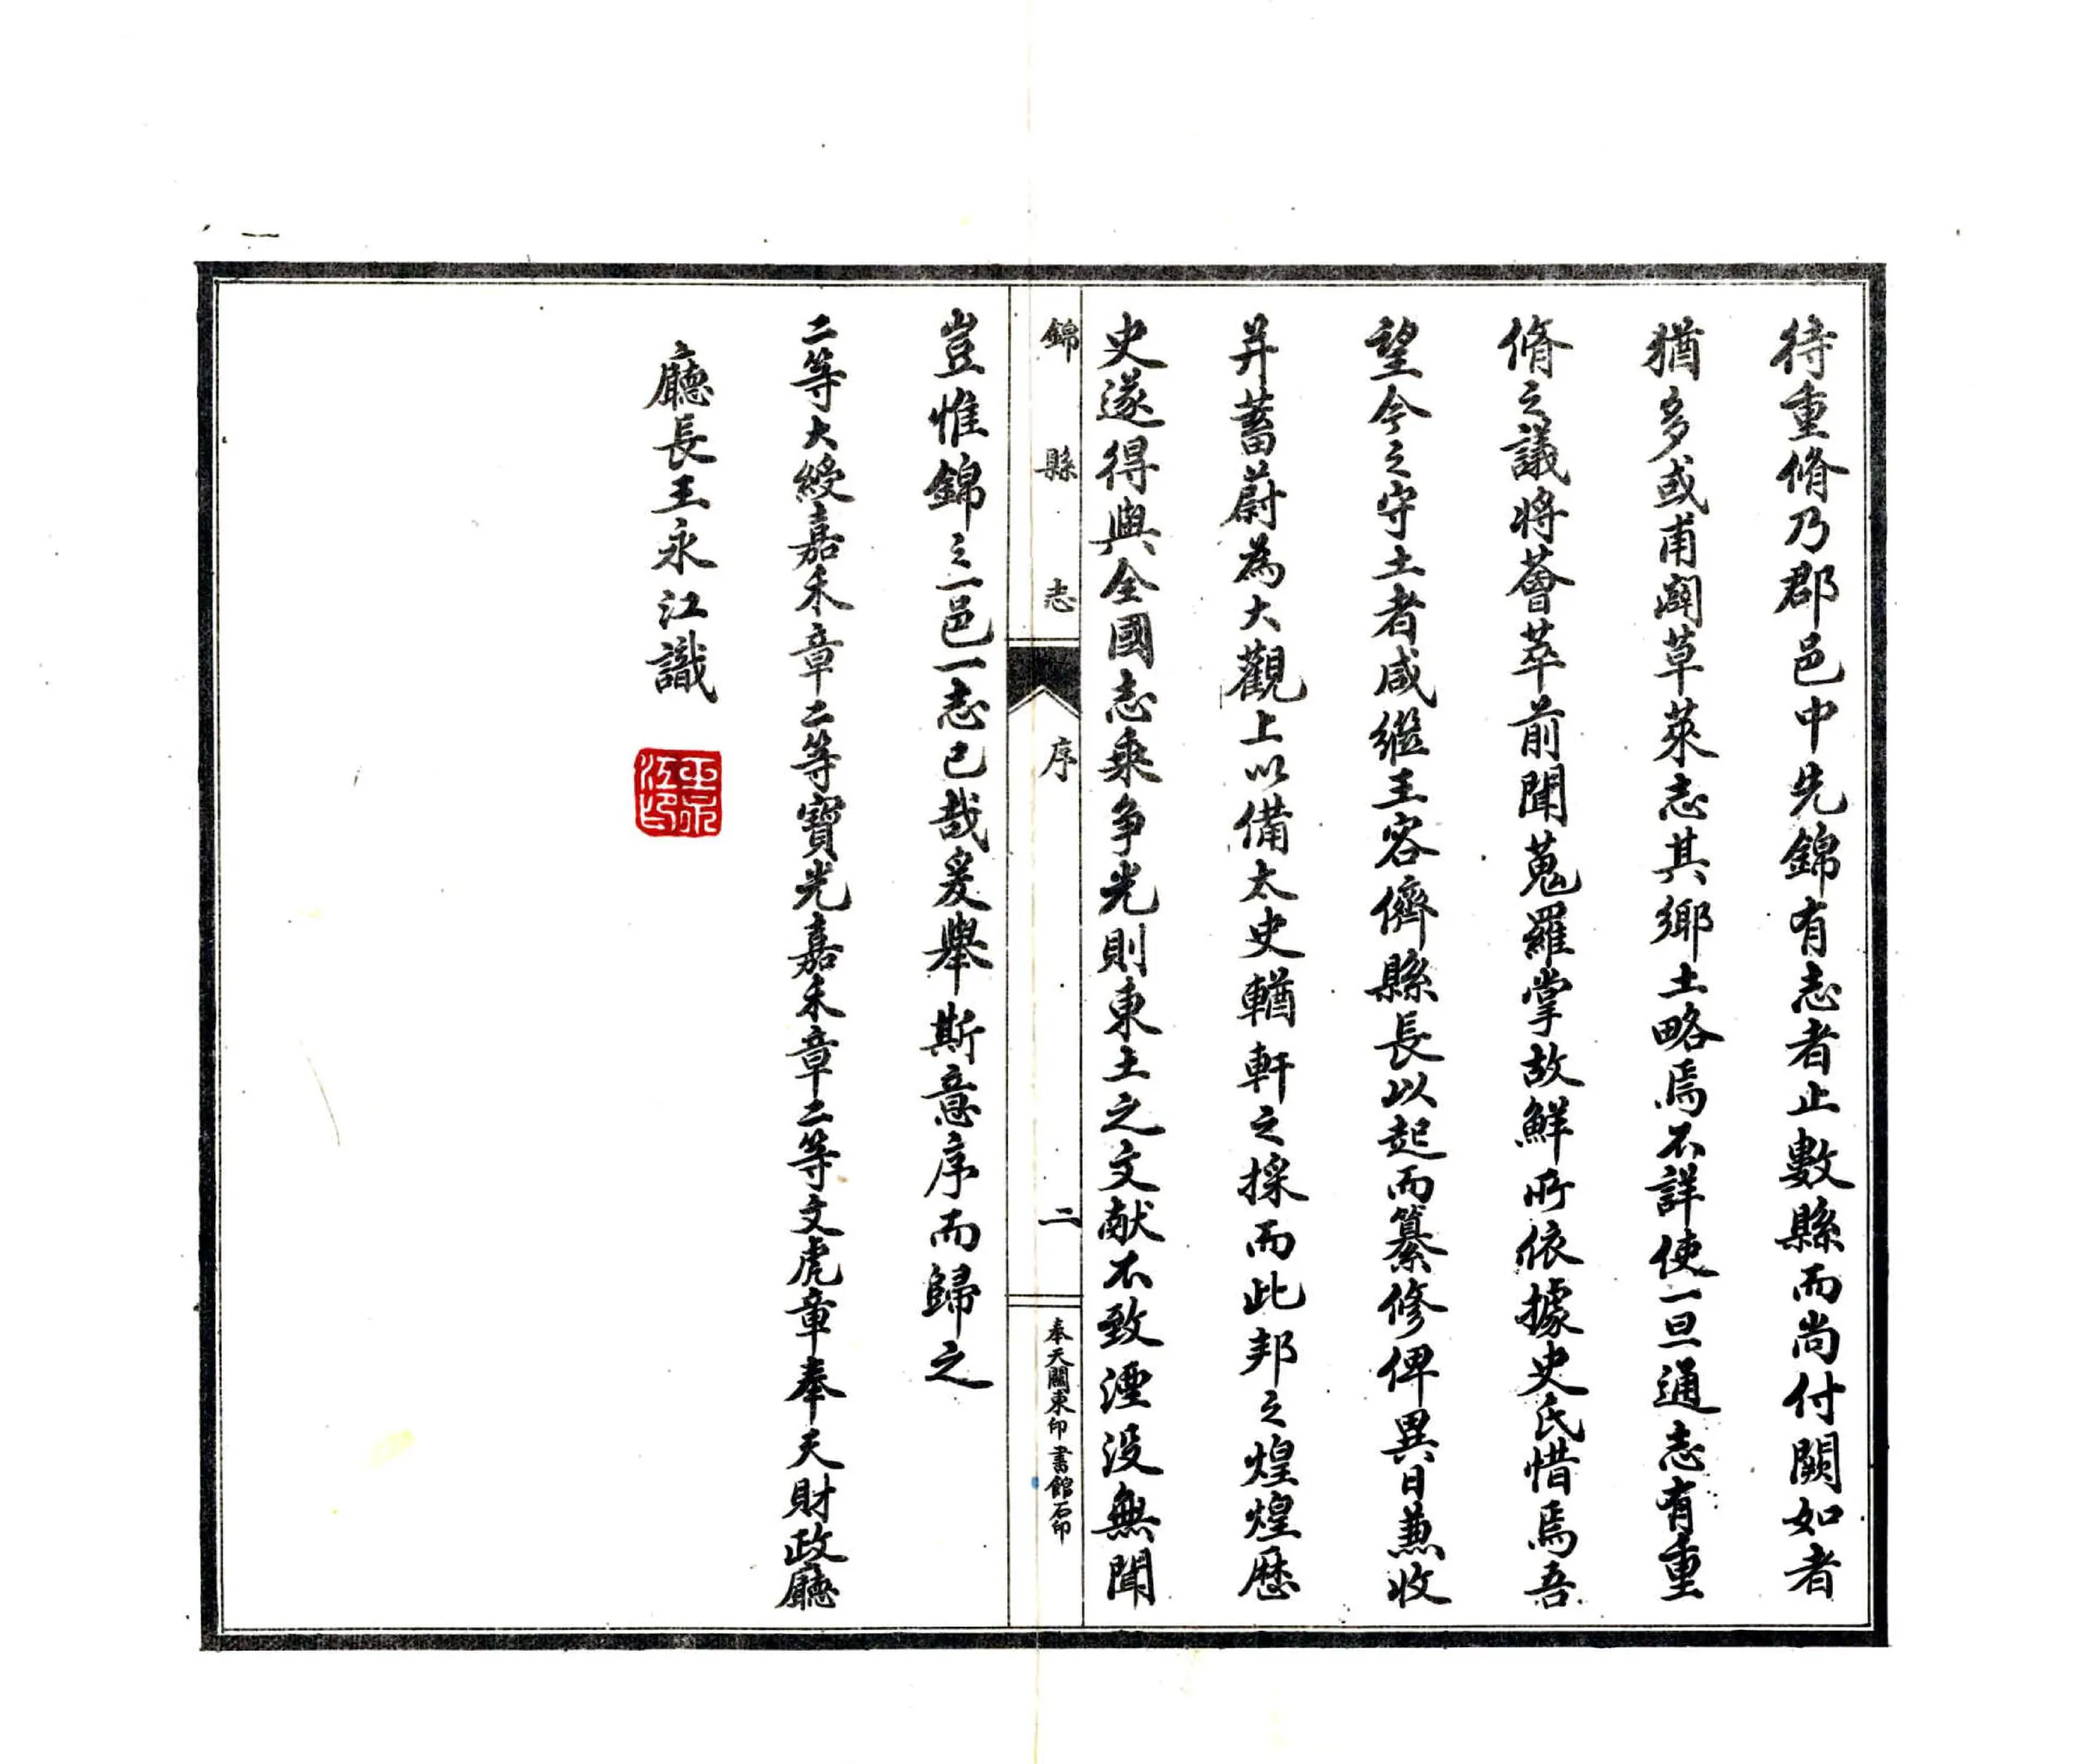 待重脩乃郡邑中先錦有志者止數縣而尚付闕如者
猶多或甫闢草萊志其鄉土略焉不詳使一旦通志有重
脩之議將薈萃前聞蒐羅掌故鮮所依據史氏惜焉吾
望今之守土者咸繼王容儕縣長以起而纂修俾異日兼收
并蓄蔚為大觀上以備太史輶軒之採而此邦之煌煌歷
史遂得與全國志乘争光則東土之文献不致湮没無聞
錦縣志
序
二
奉天關東印書館石印
豈惟錦之一邑一志已哉爰舉斯意序而歸之
二等大綬嘉禾章二等寶光嘉禾章二等文虎章奉天財政廳
廳長王永江識
王永江印